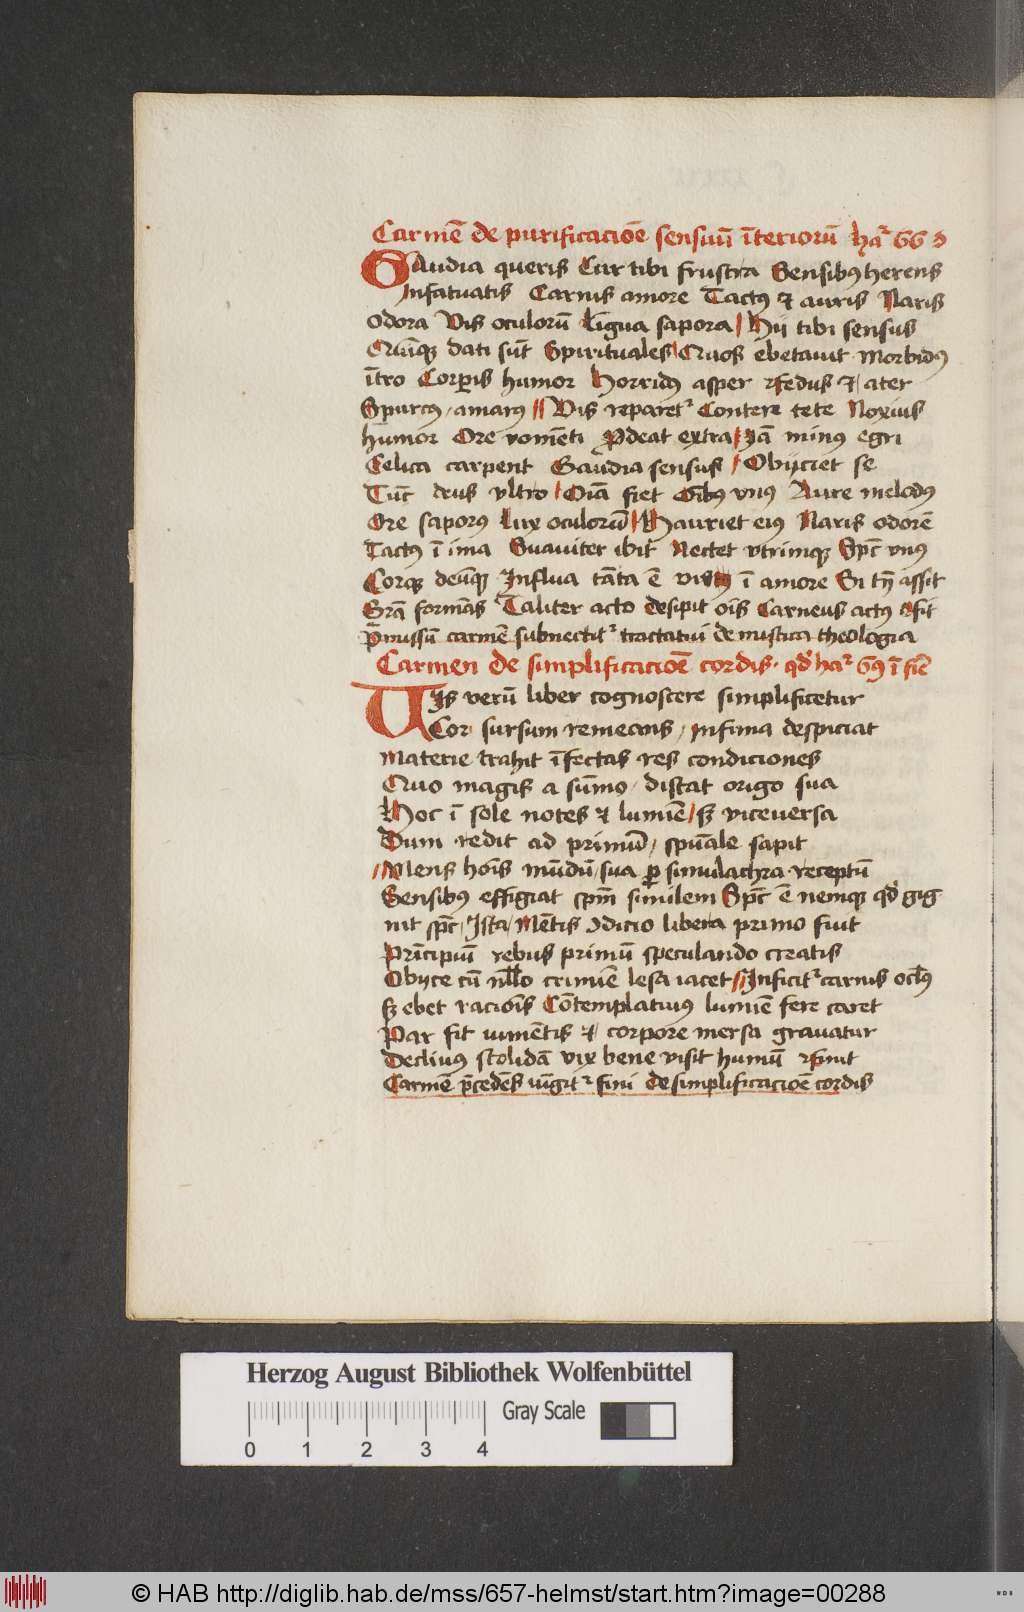 Carmē de purificacōe sensuū īterioruū hār 66 d
GAudia queris Cur tibi frustra Sensibꝰ herens
Infatuatis Carnis amore Tactꝰ & auris Naris
odora Vis oculorū Ligua sapora Hij tibi sensus
Quīqꝫ dati sūt Spirituales Quos ebetauit Morbidꝰ
ītro Corpis humor Horridꝰ asper fedus & ater
Spurcꝰ amarꝰ Vis reparetr Contere te te Noxius
humor Ore vomēti Pdeat extra Jā minꝰ egri
Celica carpent Gaudia sensus Obijciet se
Tūc deus vltro Oīa fiet Oībꝰ vnꝰ Aure melodꝰ
Ore saporꝰ Lux oculorū Hauriet eiꝰ Naris odorē
Tactꝰ ī ima Suauiter ibit Nectet vtrimqꝫ Spc vnꝰ
Corqꝫ deūqꝫ Influa tāta ē ī amore Si assit
Grā formās Taliter acto desipit oīs Carneus actꝰ
Pmissū carmē subnectitr tractatui de mistica theologia
Carmen de simplificacōe cordis qd har ī fīe
VIs verū liber cognoscere simplificetur
Cor sursum remeans, infima despiciat
Materie trahit īfectas res condiciones
Quo magis a sūmo distat origo sua
Hoc ī sole notes & lumīe sꝫ viceuersa
Dum redit ad primū, spūale sapit
Mens hoīs mūdū sua p simulachra receptū
Sensibus effigiat spm similem Spc ē nemqꝫ qd gig
nit spc, Ista Mētis ɔdicio libera primo fuit
Prīcipiū rebus primū speculando creatis
Obijce cū nllo crimīe lesa iacet Inficitr carnis oclꝰ
sꝫ ebet racioīs Cōtemplatiuus lumīe fere caret
Par fit iumētis & corpore mersa grauatur
Decliuus stolidā vix bene visit humū
Carmē pcedēs iūgitr fini de simplificacōe cordis
Herzog August Bibliothek Wolfenbüttel
Gray Scale
0 1 2 3 4
© HAB http://diglib.hab.de/mss/657-helmst/start.htm?image=00288